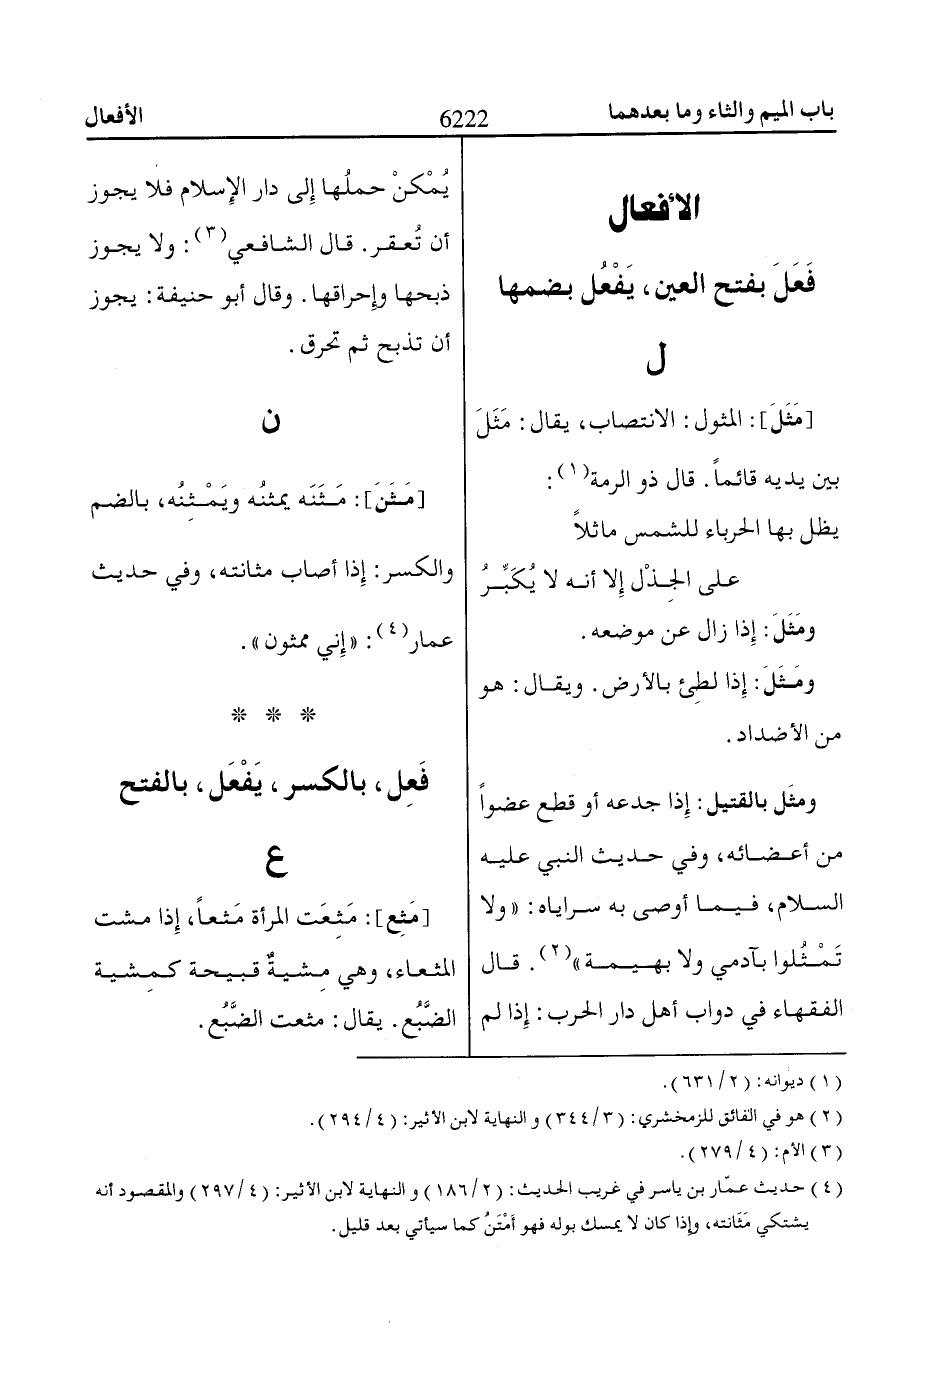 باب الميم والثاء وما بعدهما 6222 الأفعال
الأفعال
فَعَلَ بفتح العين، يَفْعُل بضمها
ل
[مَثَلَ]: المثول: الانتصاب، يقال: مَثَلَ
بين يديه قائماً. قال ذو الرمة(١):
يظل بها الحرباء للشمس ماثلاً
على الجِذْل إلا أنه لا يُكَبِّرُ
ومَثَلَ: إذا زال عن موضعه.
ومَثَلَ: إذا لطِئ بالأرض. ويقال: هو
من الأضداد.
ومثَل بالقتيل: إذا جدعه أو قطع عضواً
من أعضائه، وفي حديث النبي عليه
السلام، فيما أوصى به سراياه: «ولا
تَمْثُلوا بآدمي ولا بهيمة»(٢). قال
الفقهاء في دواب أهل دار الحرب: إذا لم
يُمْكنْ حملُها إلى دار الإسلام فلا يجوز
أن تُعقر. قال الشافعي(٣): ولا يجوز
ذبحها وإحراقها. وقال أبو حنيفة: يجوز
أن تذبح ثم تحرق.
ن
[مَثَنَ]: مَثَنَه يمثنُه ويَمْثِنُه، بالضم
والكسر: إذا أصاب مثانته، وفي حديث
عمار(٤): «إني ممثون».
* * *
فَعِل، بالكسر، يَفْعَل، بالفتح
ع
[مَثِع]: مَثِعَت المرأة مَثعاً، إذا مشت
المثعاء، وهي مِشيةٌ قبيحة كمِشية
الضَّبُع. يقال: مثعت الضَّبُع.
(١) ديوانه: (٢/٦٣١).
(٢) هو في الفائق للزمخشري: (٣/٣٤٤) و النهاية لابن الأثير: (٤/٢٩٤).
(٣) الأم: (٤/٢٧٩).
(٤) حديث عمّار بن ياسر في غريب الحديث: (٢/١٨٦) و النهاية لابن الأثير: (٤/٢٩٧) والمقصود أنه
يشتكي مَثَانته، وإذا كان لا يمسك بوله فهو أمْثَنُ كما سيأتي بعد قليل.